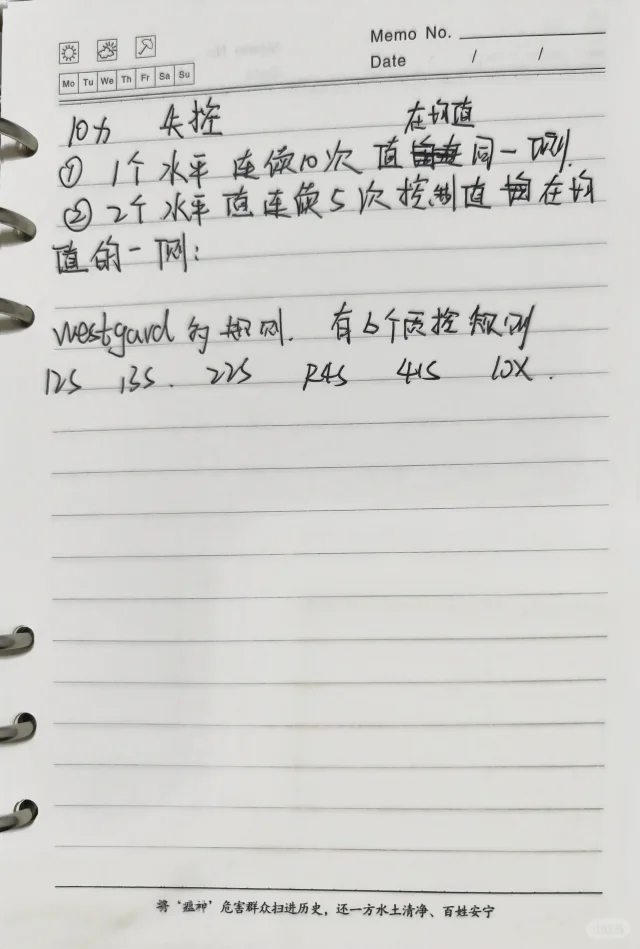 Memo No.
Date / /
Mo Tu We Th Fr Sa Su
10x 失控
在均值
① 1个水平 连续10次 值 同一侧.
② 2个水平 连续5次控制值 在均
值的一侧:
westgard 的规则. 有6个质控规则
12S 13S. 22S R4S 41S 10X.
将“瘟神”危害群众扫进历史,还一方水土清净、百姓安宁